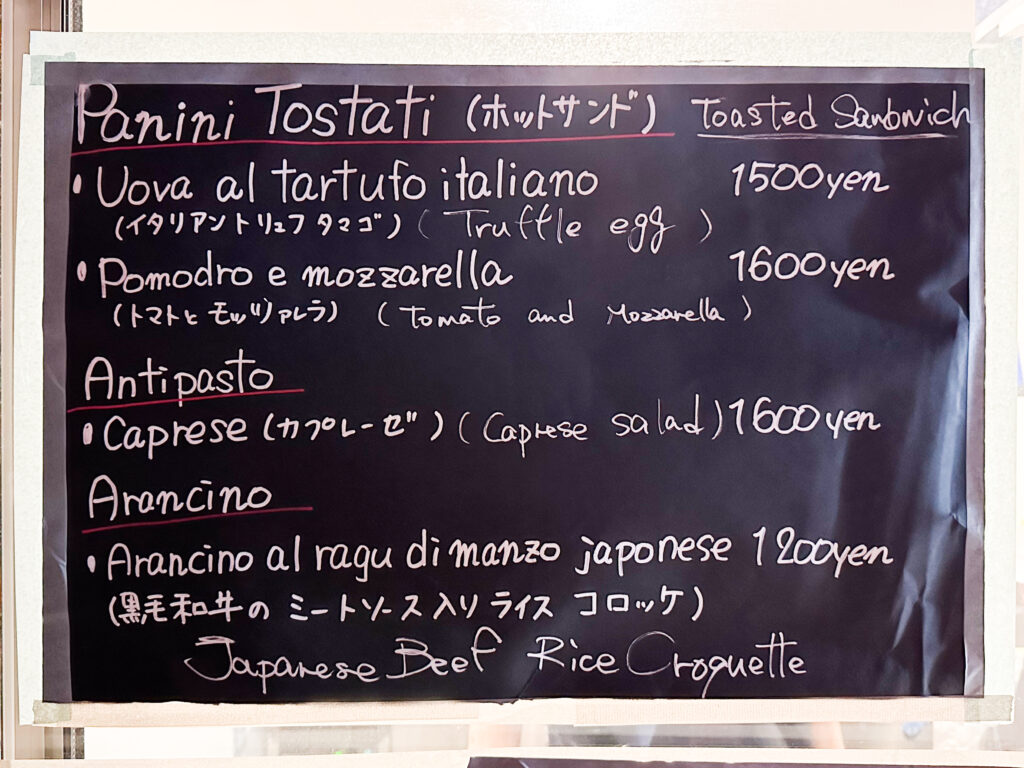 Panini Tostati (ホットサンド) Toasted Sandwich
・Uova al tartufo italiano 1500yen
(イタリアントリュフタマゴ) (Truffle egg)
・Pomodro e mozzarella 1600yen
(トマトと モッツァレラ) (Tomato and Mozzarella)
Antipasto
・Caprese (カプレーゼ) (Caprese salad) 1600yen
Arancino
・Arancino al ragu di manzo japonese 1200yen
(黒毛和牛の ミートソース入り ライス コロッケ)
Japanese Beef Rice Croquette